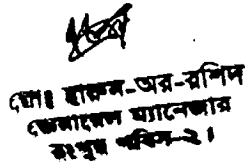 মোঃ হারুন-অর-রশিদ
জেনারেল ম্যানেজার
রংপুর পবিস-২।